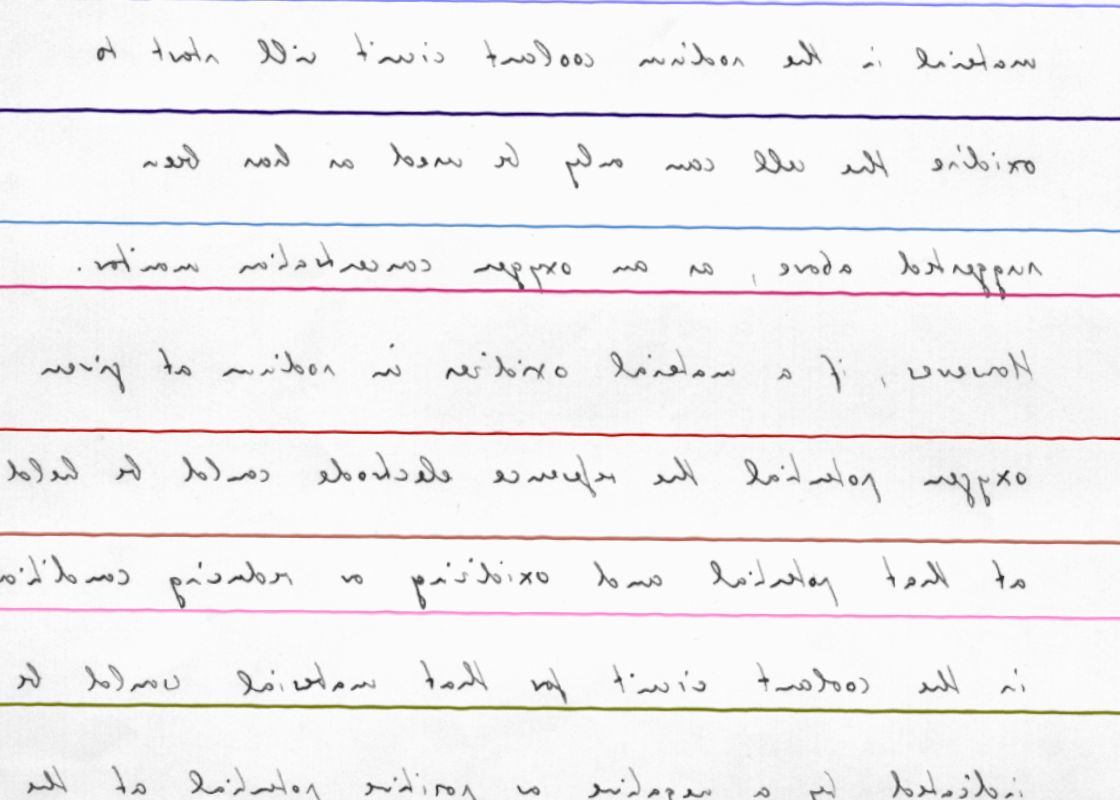 material in the sodium coolant circuit will start to
oxidise the cell can only be used as has been
suggested above, as an oxygen concentration monitor.
However, if a material oxidises in sodium at given
oxygen potential the reference electrode could be held
at that potential and oxidizing or reducing conditio
in the coolant circuit for that material would be
indicated by a negative or positive potential at the